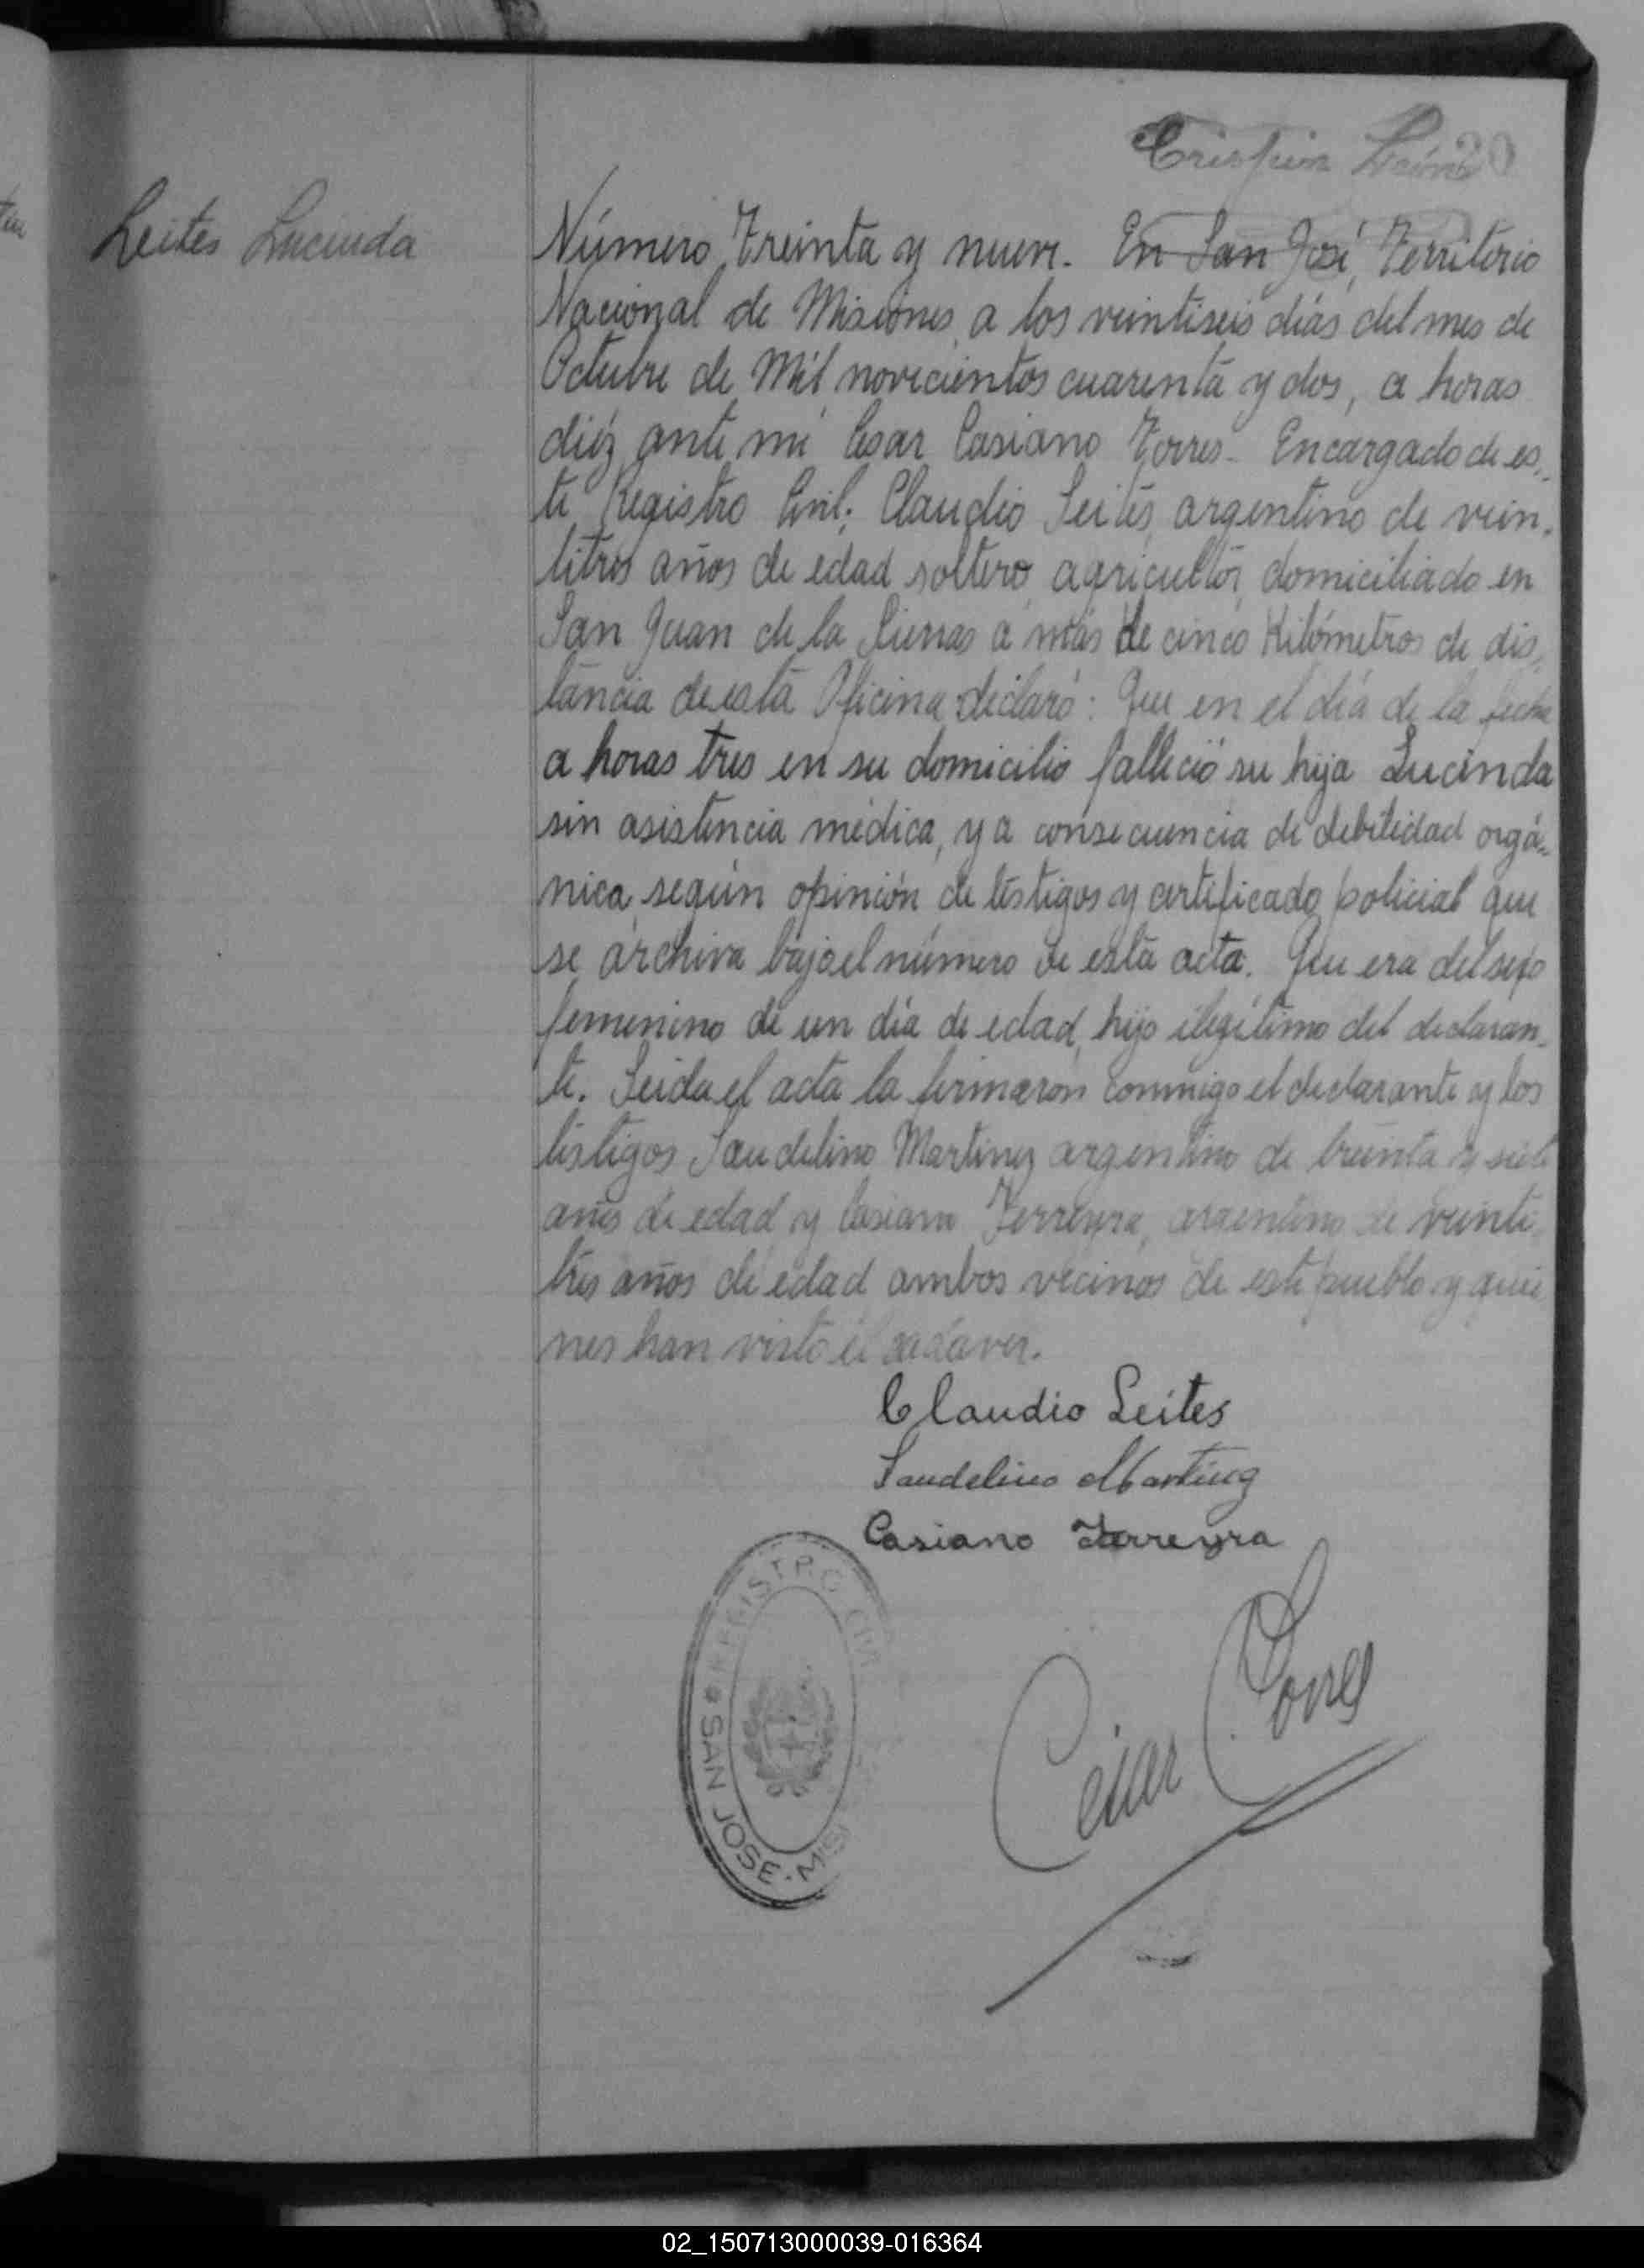 Crispin
20
Leites Lucinda
Número Treinta y nueve. En San José, Territorio
Nacional de Misiones, a los veintiseis días del mes de
Octubre de Mil novecientos cuarenta y dos, a horas
diéz ante mí Cesar Casiano Torres - Encargado de es,,
te Registro Civil; Claudio Leites, argentino de vein,
titres años de edad soltero, agricultor, domiciliado en
San Juan de la Sierras a más de cinco Kilómetros de dis,
tancia de esta Oficina declaró: Que en el día de la fecha
a horas tres en su domicilio falleció su hija Lucinda
sin asistencia médica, y a consecuencia de debilidad orgá,,
nica, según opinión de testigos y certificado policial que
se archiva bajo el número de esta acta. Que era del sexo
femenino de un día de edad, hijo ilegítimo del declaran,
te. Leida el acta la firmaron conmigo el declarante y los
testigos Laudelino Martinez argentino de treinta y siete
años de edad y Casiano Ferreyra, argentino de veinti
trés años de edad ambos vecinos de este pueblo y quie
nes han visto el cadaver.
Claudio Leites
Laudelino Martinez
Casiano Ferreyra
REGISTRO CIVIL
SAN JOSE · MIS
César Torres
02_150713000039-016364